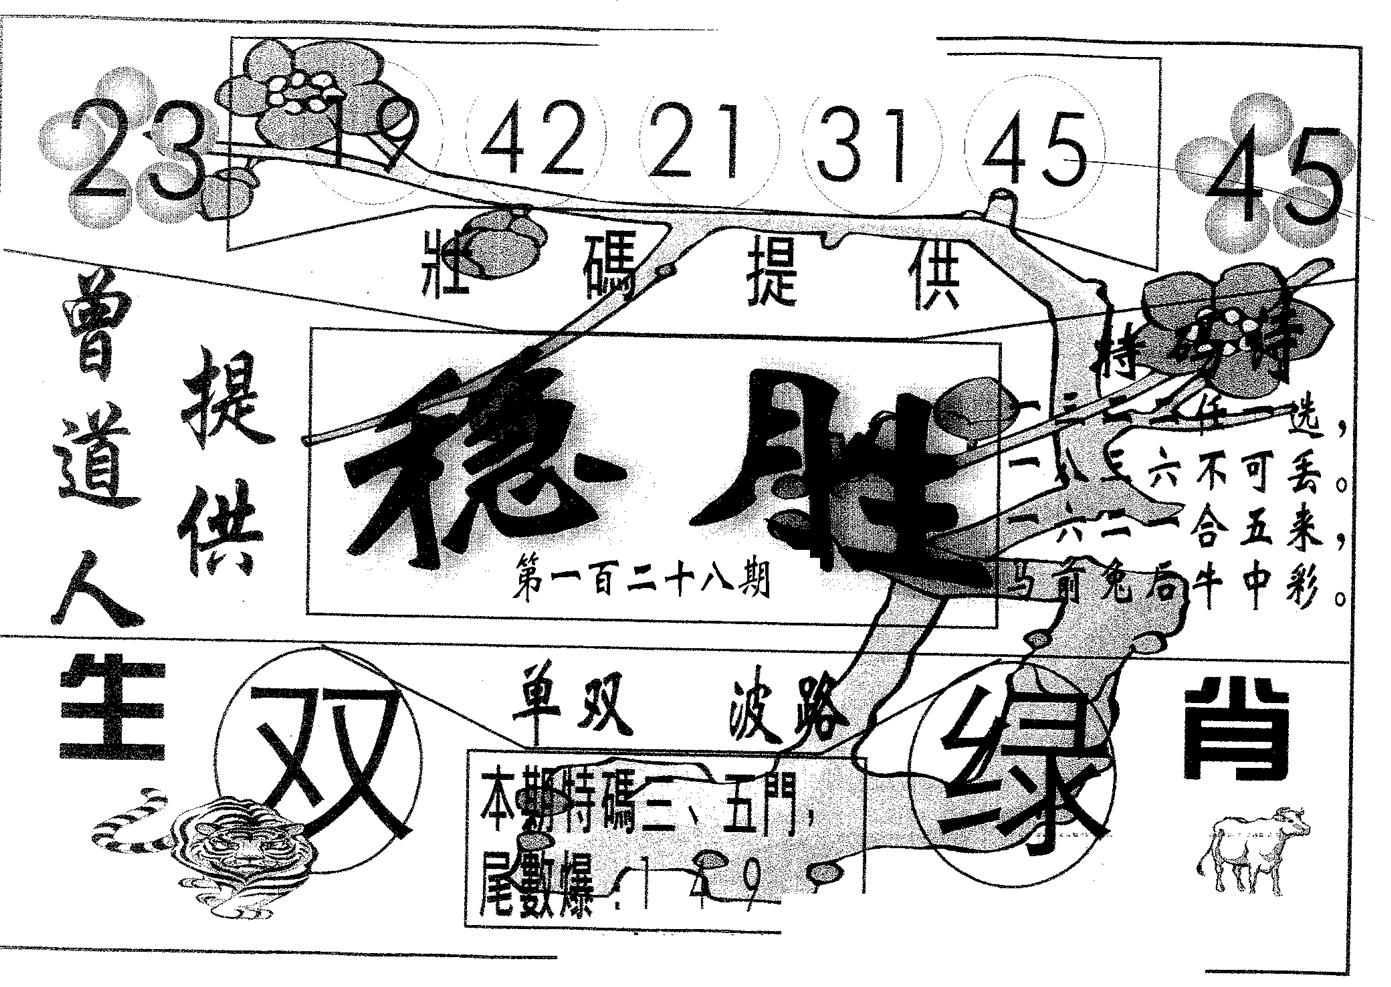 23 19 42 21 31 45 45
壯碼提供
曾道人
提供
稳胜
第一百二十八期
特码诗
一三二二任一选，
一八三六不可丢。
一六二一合五来，
马前兔后牛中彩。
生肖
双
单双 波路
绿
本期特碼三、五門，
尾數爆：1 4 9